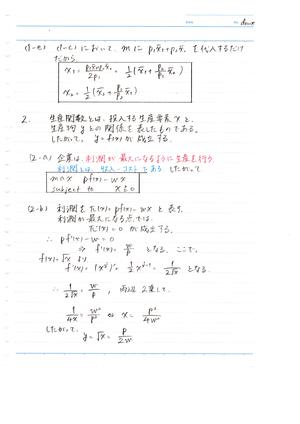 (1-e) (1-c)において、mに p₁x̄₁+p₂x̄₂ を代入するだけ
だから、
x₁ = (p₁x̄₁+p₂x̄₂)/2p₁ = 1/2 (x̄₁ + p₂/p₁ x̄₂)
x₂ = 1/2 (x̄₂ + p₁/p₂ x̄₁)
2. 生産関数とは、投入する生産要素xと、
生産物yとの関係を表したものである。
したがって、y=f(x)が成立する。
(2-a) 企業は、利潤が最大になるように生産を行う。
利潤とは、収入-コストである。したがって
max pf(x) - wx
subject to x≧0
(2-b) 利潤をπ(x)=pf(x)-wxと表す。
利潤が最大になる点では、
π'(x)=0 が成立する。
∴ pf'(x)-w=0
⇒ f'(x)=w/p となる。ここで、
f(x)=√x より
f'(x)=(x^½)'=½x^(½-1)=1/(2√x) となる。
∴ 1/(2√x)=w/p , 両辺2乗して、
1/4x = w²/p² ⇔ x = p²/4w²
したがって、y=√x = p/2w